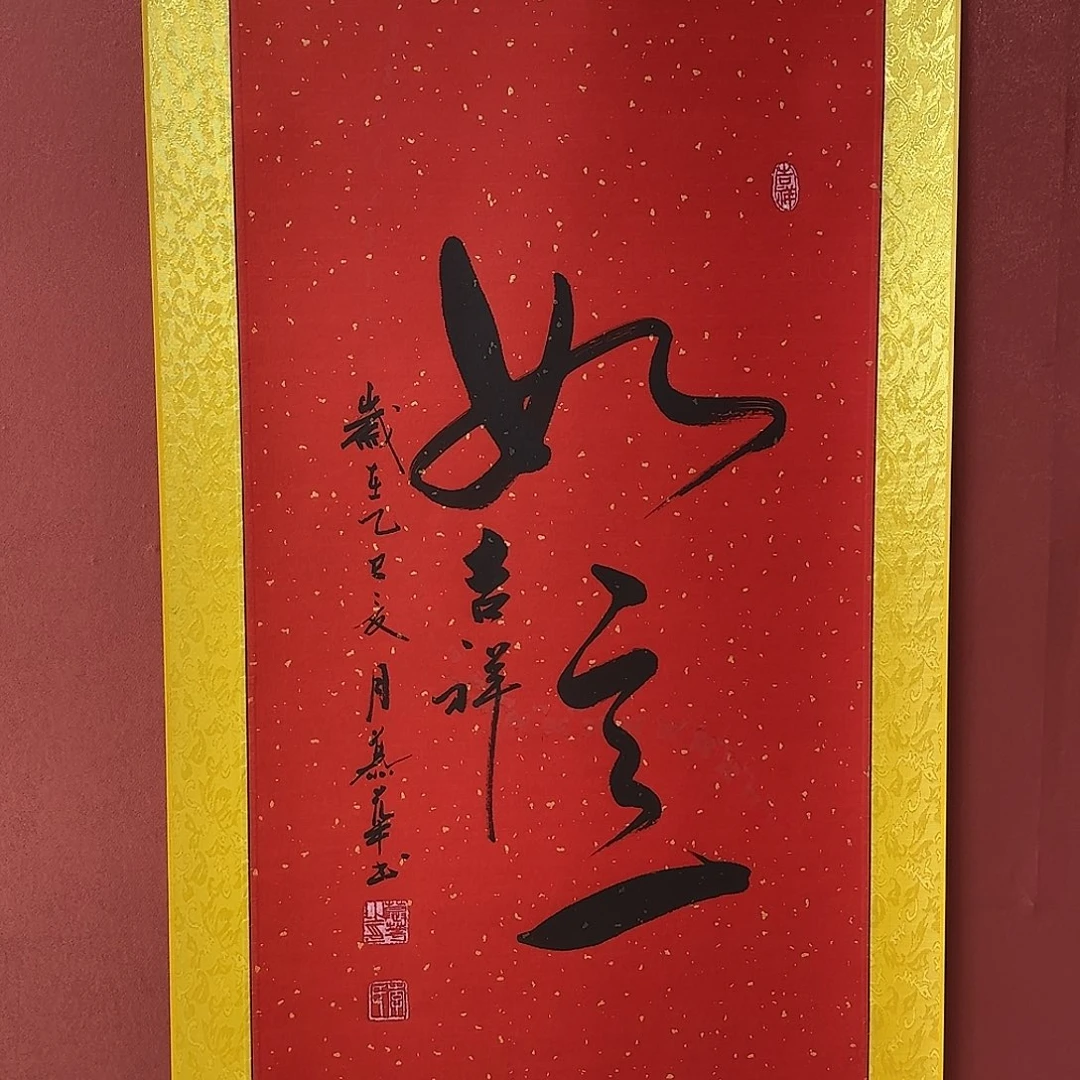 如意
吉祥
歲在乙巳亥月慕華书